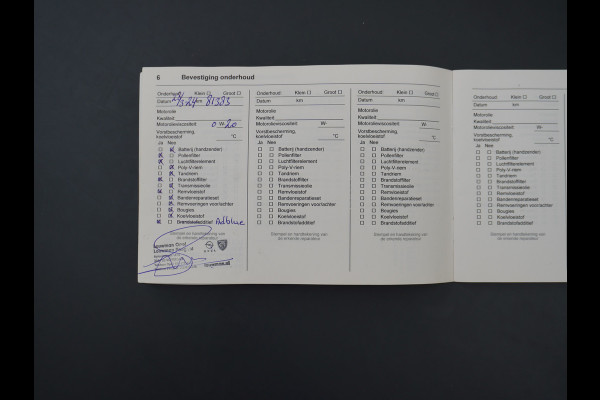 6 Bevestiging onderhoud
Onderhoud: Klein Groot
Datum 24 km 81383
Motorolie
Kwaliteit
Motorolieviscositeit 0 W- 20
Vorstbescherming,
koelvloeistof °C
Ja Nee
Batterij (handzender)
Pollenfilter
Luchtfilterelement
Poly-V-riem
Tandriem
Brandstoffilter
Transmissieolie
Remvloeistof
Bandenreparatieset
Remvoeringen voor/achter
Bougies
Koelvloeistof
Brandstofadditief Adblue
Stempel en handtekening van
de erkende reparateur
Onderhoud: Klein Groot
Datum km
Motorolie
Kwaliteit
Motorolieviscositeit W-
Vorstbescherming,
koelvloeistof °C
Ja Nee
Batterij (handzender)
Pollenfilter
Luchtfilterelement
Poly-V-riem
Tandriem
Brandstoffilter
Transmissieolie
Remvloeistof
Bandenreparatieset
Remvoeringen voor/achter
Bougies
Koelvloeistof
Brandstofadditief
Stempel en handtekening van
de erkende reparateur
Onderhoud: Klein Groot
Datum km
Motorolie
Kwaliteit
Motorolieviscositeit W-
Vorstbescherming,
koelvloeistof °C
Ja Nee
Batterij (handzender)
Pollenfilter
Luchtfilterelement
Poly-V-riem
Tandriem
Brandstoffilter
Transmissieolie
Remvloeistof
Bandenreparatieset
Remvoeringen voor/achter
Bougies
Koelvloeistof
Brandstofadditief
Stempel en handtekening van
de erkende reparateur
Onderhoud: Klein Groot
Datum km
Motorolie
Kwaliteit
Motorolieviscositeit W-
Vorstbescherming,
koelvloeistof °C
Ja Nee
Batterij (handzender)
Pollenfilter
Luchtfilterelement
Poly-V-riem
Tandriem
Brandstoffilter
Transmissieolie
Remvloeistof
Bandenreparatieset
Remvoeringen voor/achter
Bougies
Koelvloeistof
Brandstofadditief
Stempel en handtekening van
de erkende reparateur